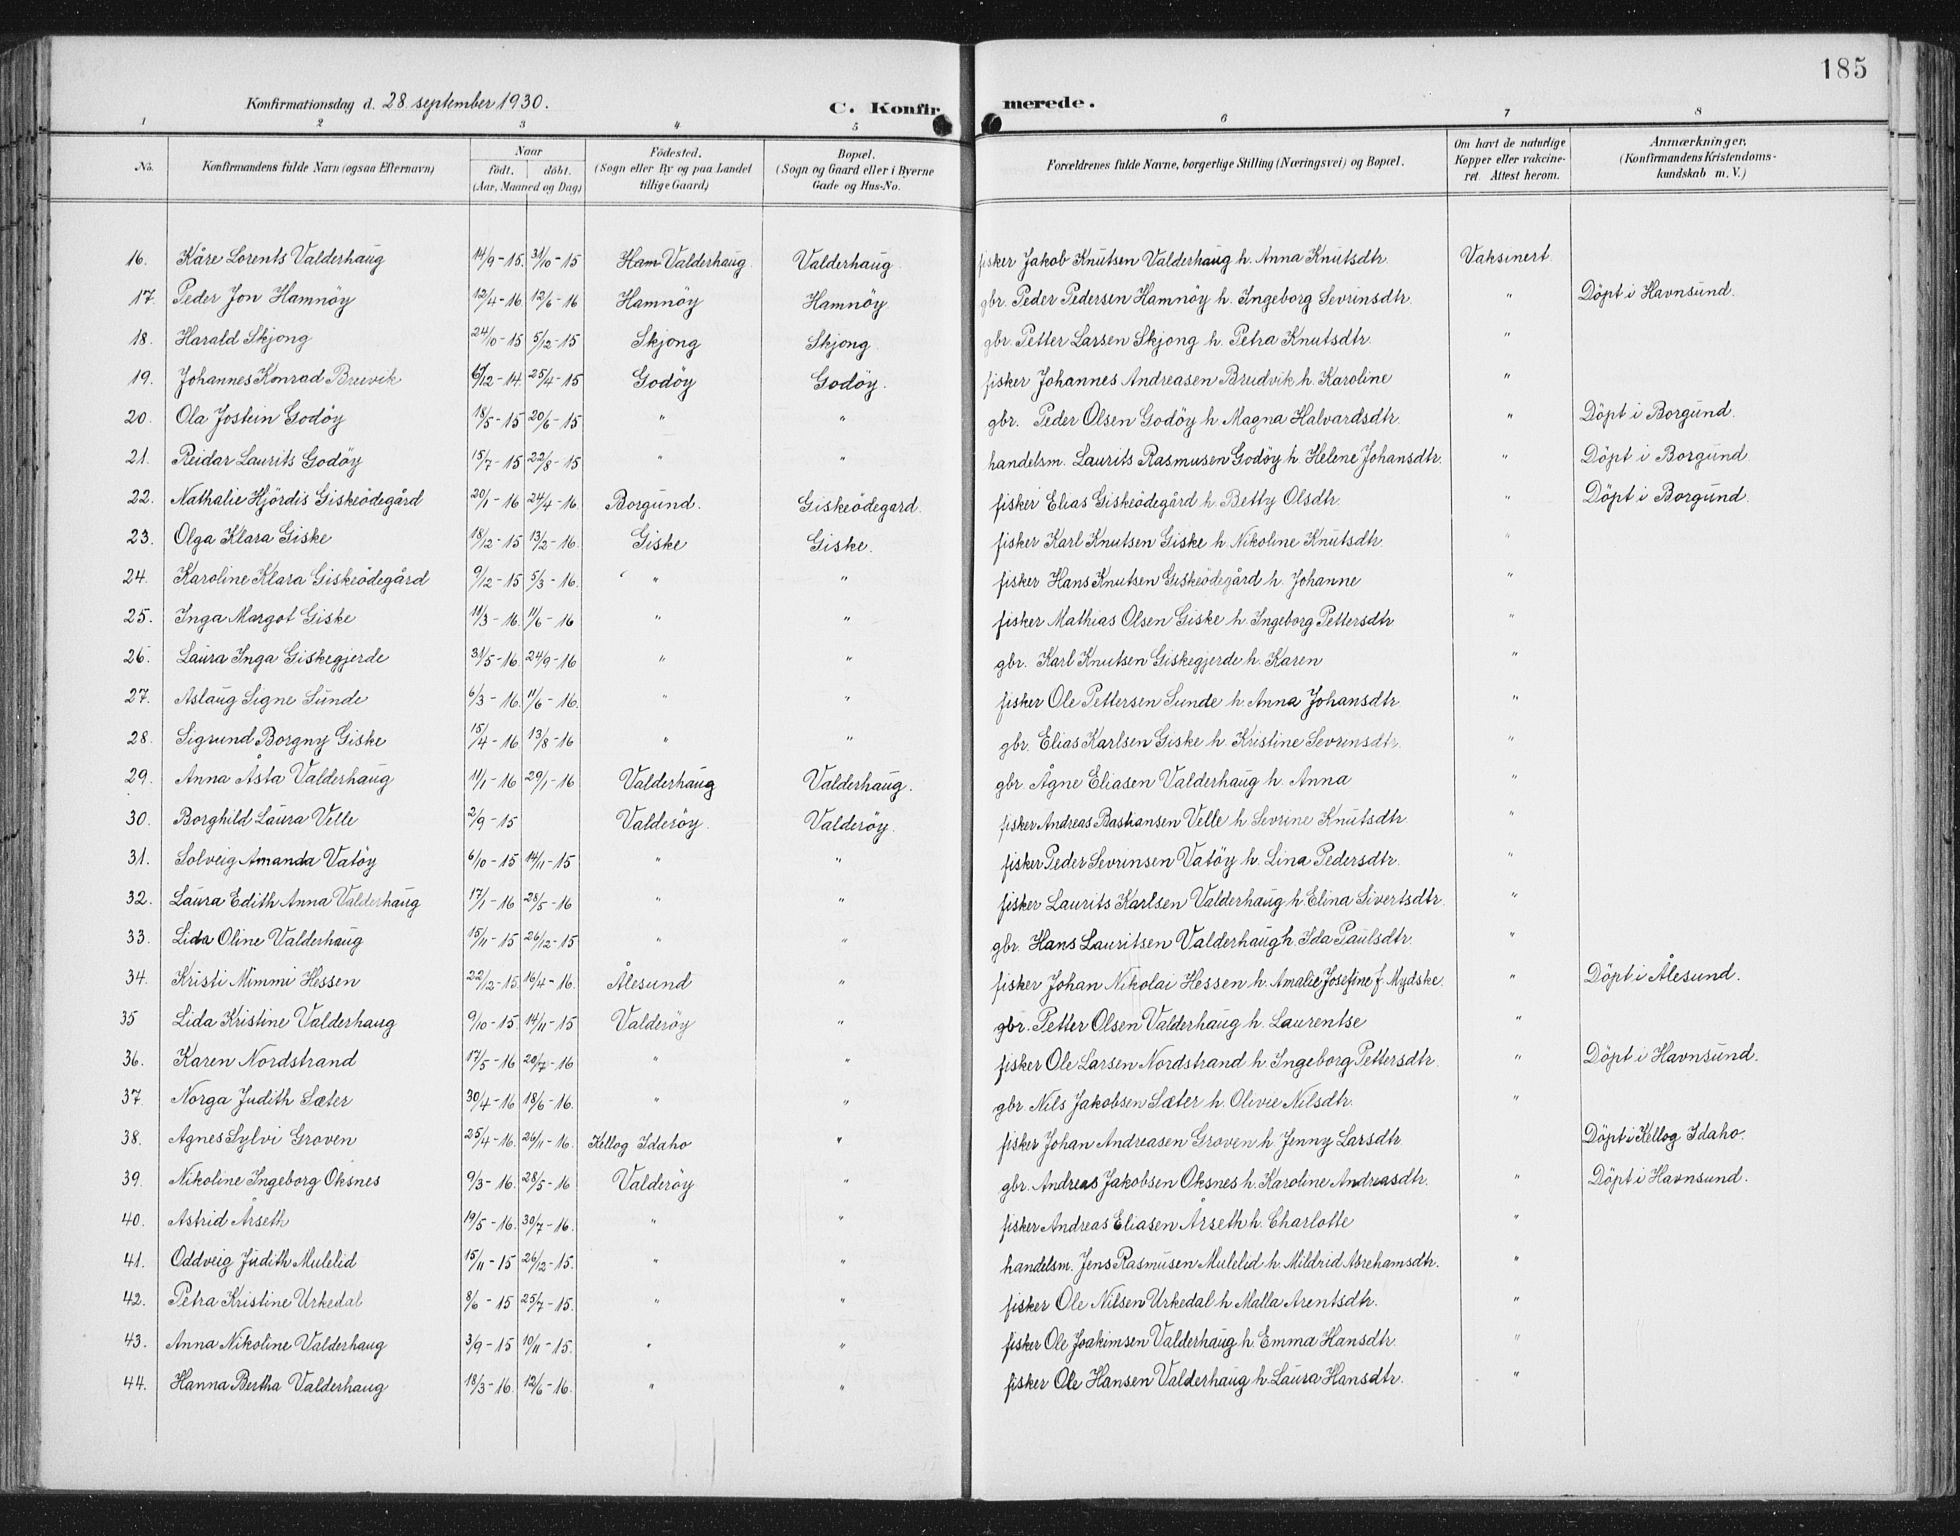 185
Konfirmationsdag d. 28. september 1930.
C. Konfirmerede.
1 2 3 4 5 6 7 8
No. Konfirmandens fulde Navn (ogsaa Efternavn) Naar födt. döbt. (Aar, Maaned og Dag) Födested. (Sogn eller By og paa Landet tillige Gaard) Bopæl. (Sogn og Gaard eller i Byerne Gade og Hus-No. Forældrenes fulde Navne, borgerlige Stilling (Næringsvei) og Bopæl. Om havt de naturlige Kopper eller vakcineret. Attest herom. Anmærkninger. (Konfirmandens Kristendomskundskab m. V.)
16. Kåre Lorents Valderhaug 14/9-15. 31/10-15 Ham Valderhaug Valderhaug. fisker Jakob Knutsen Valderhaug h. Anna Knutsdtr. Vaksinert.
17. Peder Jon Hamnöy 12/4-16 12/6-16 Hamnöy Hamnöy. gbr. Peder Pedersen Hamnöy h. Ingeborg Sevrinsdtr. " Döpt i Havnsund.
18. Harald Skjong 24/10-15 5/12-15 Skjong Skjong. gbr. Petter Larsen Skjong h. Petra Knutsdtr. "
19. Johannes Konrad Breivik 6/12-14. 25/4-15 Godöy Godöy. fisker Johannes Andreasen Breidvik h. Karoline "
20. Ola Jostein Godöy 18/5-15 20/6-15 " " gbr. Peder Olsen Godöy h. Magna Halvardsdtr. " Döpt i Borgund.
21. Reidar Laurits Godöy 15/7-15 22/8-15 " " handelsm. Laurits Rasmusen Godöy h. Helene Johansdtr. " Döpt i Borgund.
22. Nathalie Hjördis Giskeödegård 20/1-16 24/4-16. Borgund. Giskeödegard. fisker Elias Giskeödegård h. Betty Olsdtr. " Döpt i Borgund.
23. Olga Klara Giske 18/12-15 13/2-16. Giske Giske. fisker Karl Knutsen Giske h. Nikoline Knutsdtr. "
24. Karoline Klara Giskeödegård 9/12-15 5/3-16. " " fisker Hans Knutsen Giskeödegård h. Johanne "
25. Inga Margot Giske 11/3-16. 11/6-16 " " fisker Mathias Olsen Giske h. Ingeborg Pettersdtr "
26. Laura Inga Giskegjerde 31/5-16. 24/9-16 " " gbr. Karl Knutsen Giskegjerde h. Karen "
27. Aslaug Signe Sunde 6/3-16. 11/6-16. " " fisker Ole Pettersen Sunde h. Anna Johansdtr. "
28. Sigrund Borgny Giske 15/4-16 13/8-16 " " gbr. Elias Karlsen Giske h. Kristine Sevrensdtr. "
29. Anna Åsta Valderhaug 11/1-16 29/1-16 Valderhaug Valderhaug. gbr. Ågne Eliasen Valderhaug h. Anna "
30. Borghild Laura Velle 2/9-15 Valderöy. Valderöy. fisker Andreas Bastiansen Velle h. Sevrine Knutsdtr "
31. Solveig Amanda Vatöy 6/10-15 14/11-15 " " fisker Peder Sevrinsen Vatöy h. Lina Pedersdtr. "
32. Laura Edith Anna Valderhaug 17/1-16 28/5-16 " " fisker Laurits Karlsen Valderhaug h. Elina Sivertsdtr. "
33. Lida Oline Valderhaug 15/11-15 26/12-15 " " gbr. Hans Lauritsen Valderhaug h. Ida Paulsdtr. "
34. Kristi Mimmi Hessen 22/12-15 16/4-16. Ålesund " fisker Johan Nikolai Hessen h. Amalie Josefine f. Mydske. " Döpt i Ålesund.
35 Lida Kristine Valderhaug 9/10-15. 14/11-15 Valderöy " gbr. Petter Olsen Valderhaug h. Laurentse "
36. Karen Nordstrand 17/5-16 20/7-16 " " fisker Ole Larsen Nordstrand h Ingeborg Pettersdtr. " Döpt i Havnsund.
37. Norga Judith Sæter 30/4-16 18/6-16. " " gbr. Nils Jakobsen Sæter h. Olivie Nilsdtr. "
38. Agnes Sylvi Groven 25/4-16. 26/11-16. Kellog Idaho " fisker Johan Andreasen Groven h. Jenny Larsdtr. Döpt i Kellog Idaho.
39. Nikoline Ingeborg Oksnes 9/3-16. 28/5-16 Valderöy " gbr. Andreas Jakobsen Oksnes h. Karoline Andreasdtr. " Döpt i Havnsund.
40. Astrid Årseth 19/5-16. 30/7-16. " " fisker Andreas Eliasen Årseth h. Charlotte "
41. Oddveig Judith Mulelid 15/11-15 26/12-15. " " handelsm. Jens Rasmusen Mulelid h. Mildrid Abrehamsdtr. "
42. Petra Kristine Urkedal 8/6-15 25/7-15. " " fisker Ole Nilsen Urkedal h Malla Arentsdtr. "
43. Anna Nikoline Valderhaug 3/9-15 10/11-15. " " fisker Ole Joakimsen Valderhaug h. Emma Hansdtr. "
44. Hanna Bertha Valderhaug 18/3-16. 12/6-16. " " fisker Ole Hansen Valderhaug h. Laura Hansdtr. "